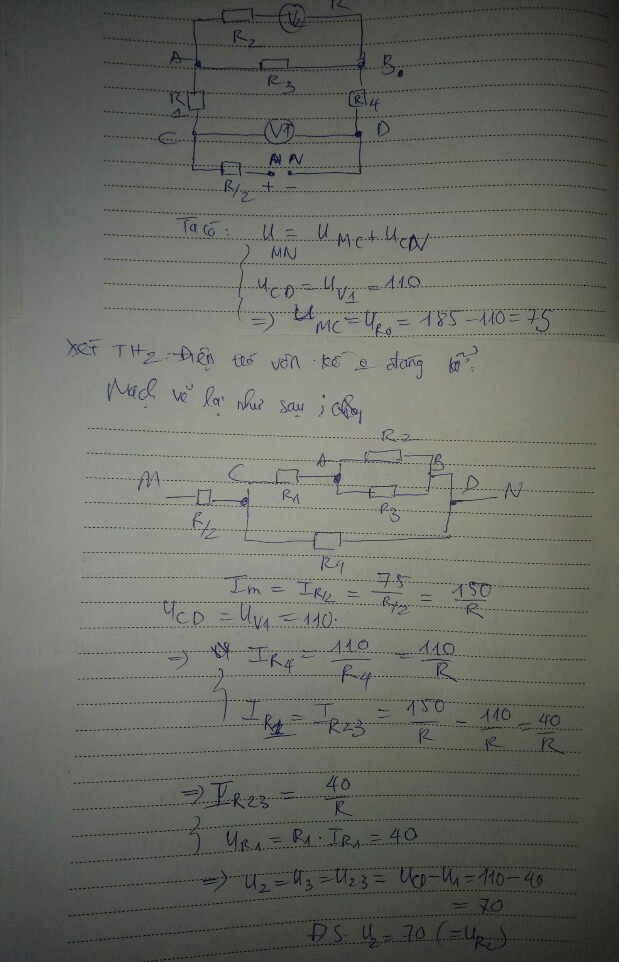 R
R2 V2
A B.
R3
R1 R4
C V1 D
M N
R/2 + -
Ta có: U MN = U MC + U CN
U CD = U V1 = 110
=> U MC = U R0 = 185 - 110 = 75
Xét TH2 Điện trở vôn kế đáng kể:
Mạch vẽ lại như sau ;
R2
M C A B D N
R/2 R1 R3
R4
Im = I R/2 = 75 / R/2 = 150/R
U CD = U V1 = 110.
=> I R4 = 110/R4 = 110/R
I R1 = I R23 = 150/R - 110/R = 40/R
=> I R23 = 40/R
U R1 = R1 . I R1 = 40
=> U2 = U3 = U23 = U CD - U1 = 110 - 40
= 70
ĐS: U2 = 70 (= U R2)